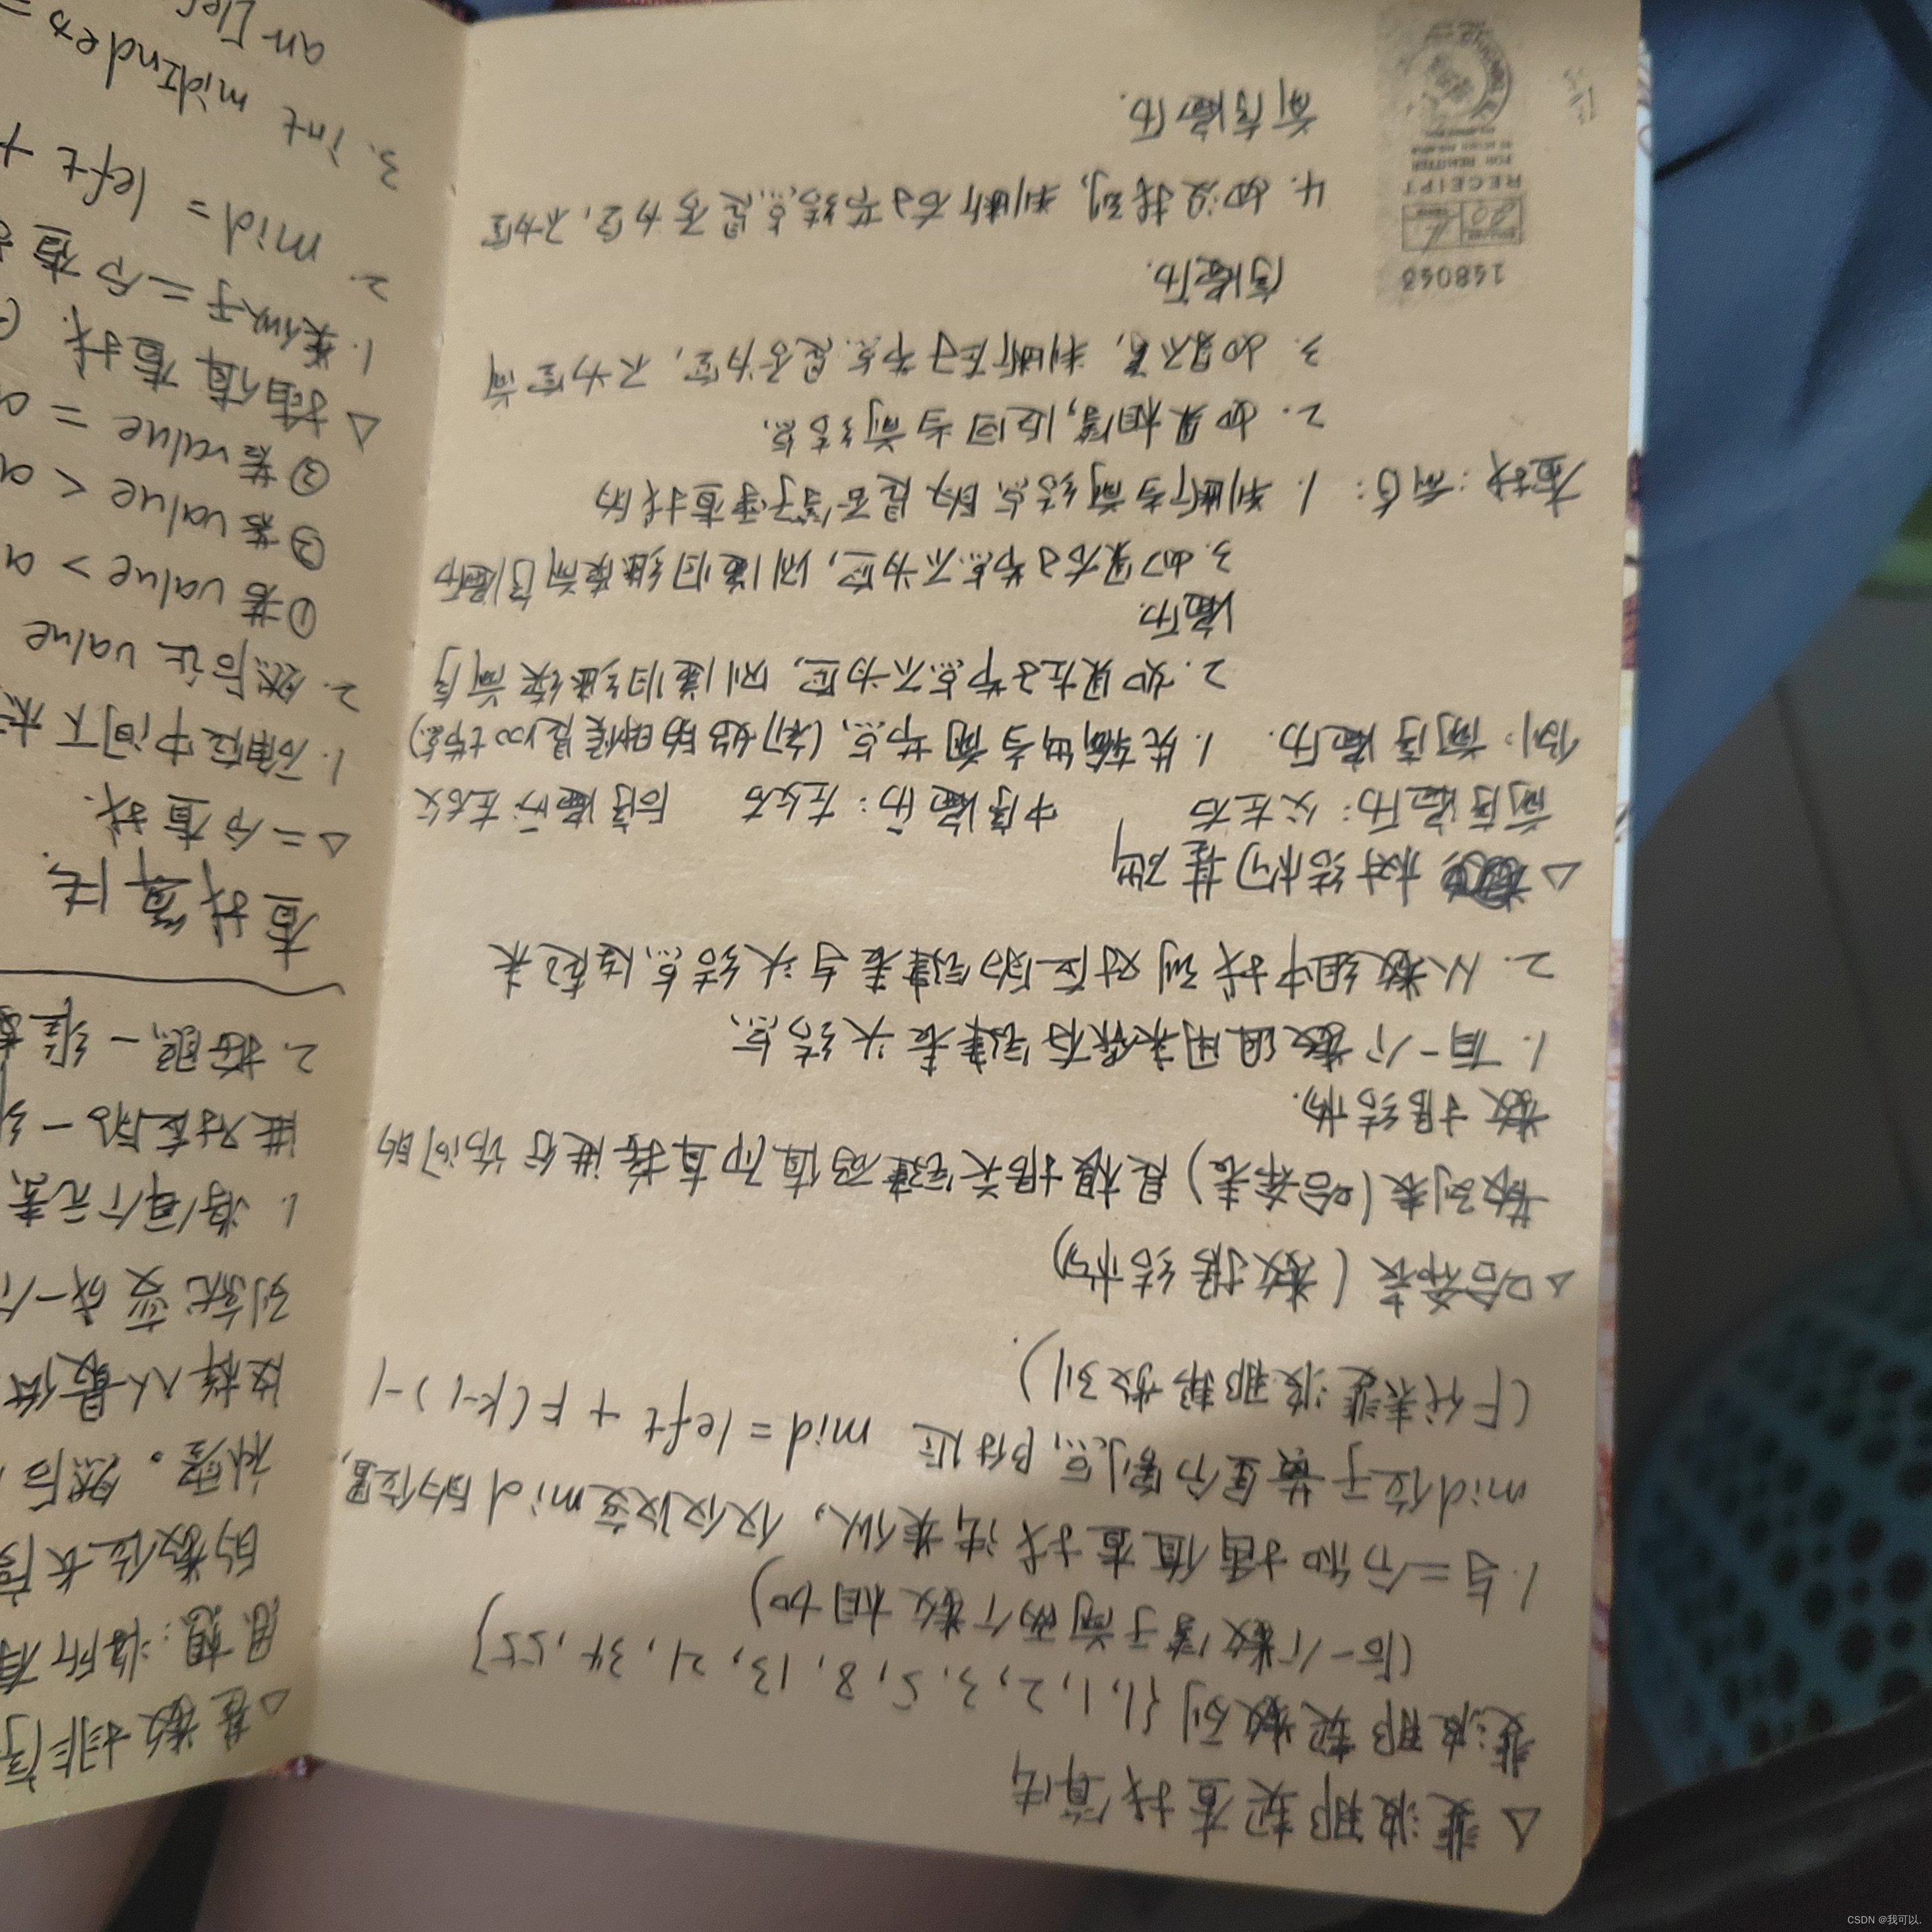 △ 斐波那契查找算法
斐波那契数列 {1, 1, 2, 3, 5, 8, 13, 21, 34, 55}
(后一个数等于前两个数相加)
1. 与二分和插值查找法类似, 仅仅改变mid的位置,
mid位于黄金分割点附近 mid = left + F(k-1) -1
(F代表斐波那契数列).
△哈希表 (数据结构)
散列表 (哈希表) 是根据关键码值而直接进行访问的
数据结构.
1. 有一个数组用来保存链表头结点
2. 从数组中找到对应的链表与头结点
△ 树结构基础
前序遍历: 父左右 中序遍历: 左父右 后序遍历: 左右父
例: 前序遍历. 1. 先输出当前节点 (初始的时候是root节点)
2. 如果左子节点不为空, 则递归继续前序
遍历.
3. 如果右子节点不为空, 则递归继续前序遍历
查找: 前序: 1. 判断当前结点的是否等于要查找的
2. 如果相等, 返回当前结点.
3. 如果不等, 判断左子节点是否为空, 不为空前
序遍历.
4. 如没找到, 判断右子节结点是否为空, 不为空
前序遍历.
148043
RECEIPT
FOR REMITTER
△基数排序
思想: 将所有
的数位长度
补零。然后
这样从最低
列就变成一个
1. 将每个元素
进对应的一
2. 按照一维
查找算法.
△二分查找.
1. 确定中间下标
2. 然后让 value
①若 value > a
②若 value < a
③若 value = a
△插值查找. (
1. 类似于二分查
2. mid = left +
3. int midIndex =
arr[lef
CSDN @我可以.